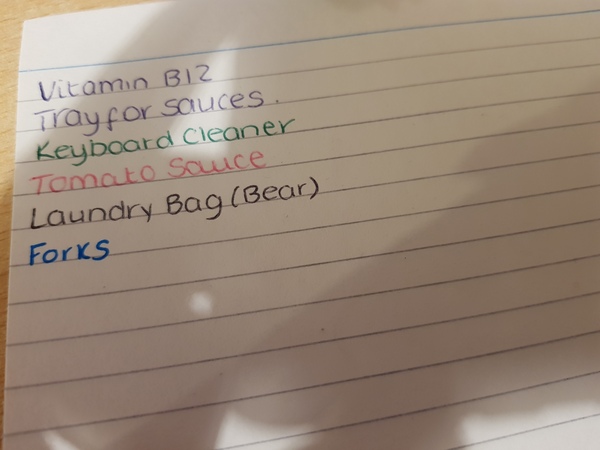 Vitamin B12
Tray for sauces.
Keyboard Cleaner
Tomato Sauce
Laundry Bag (Bear)
Forks